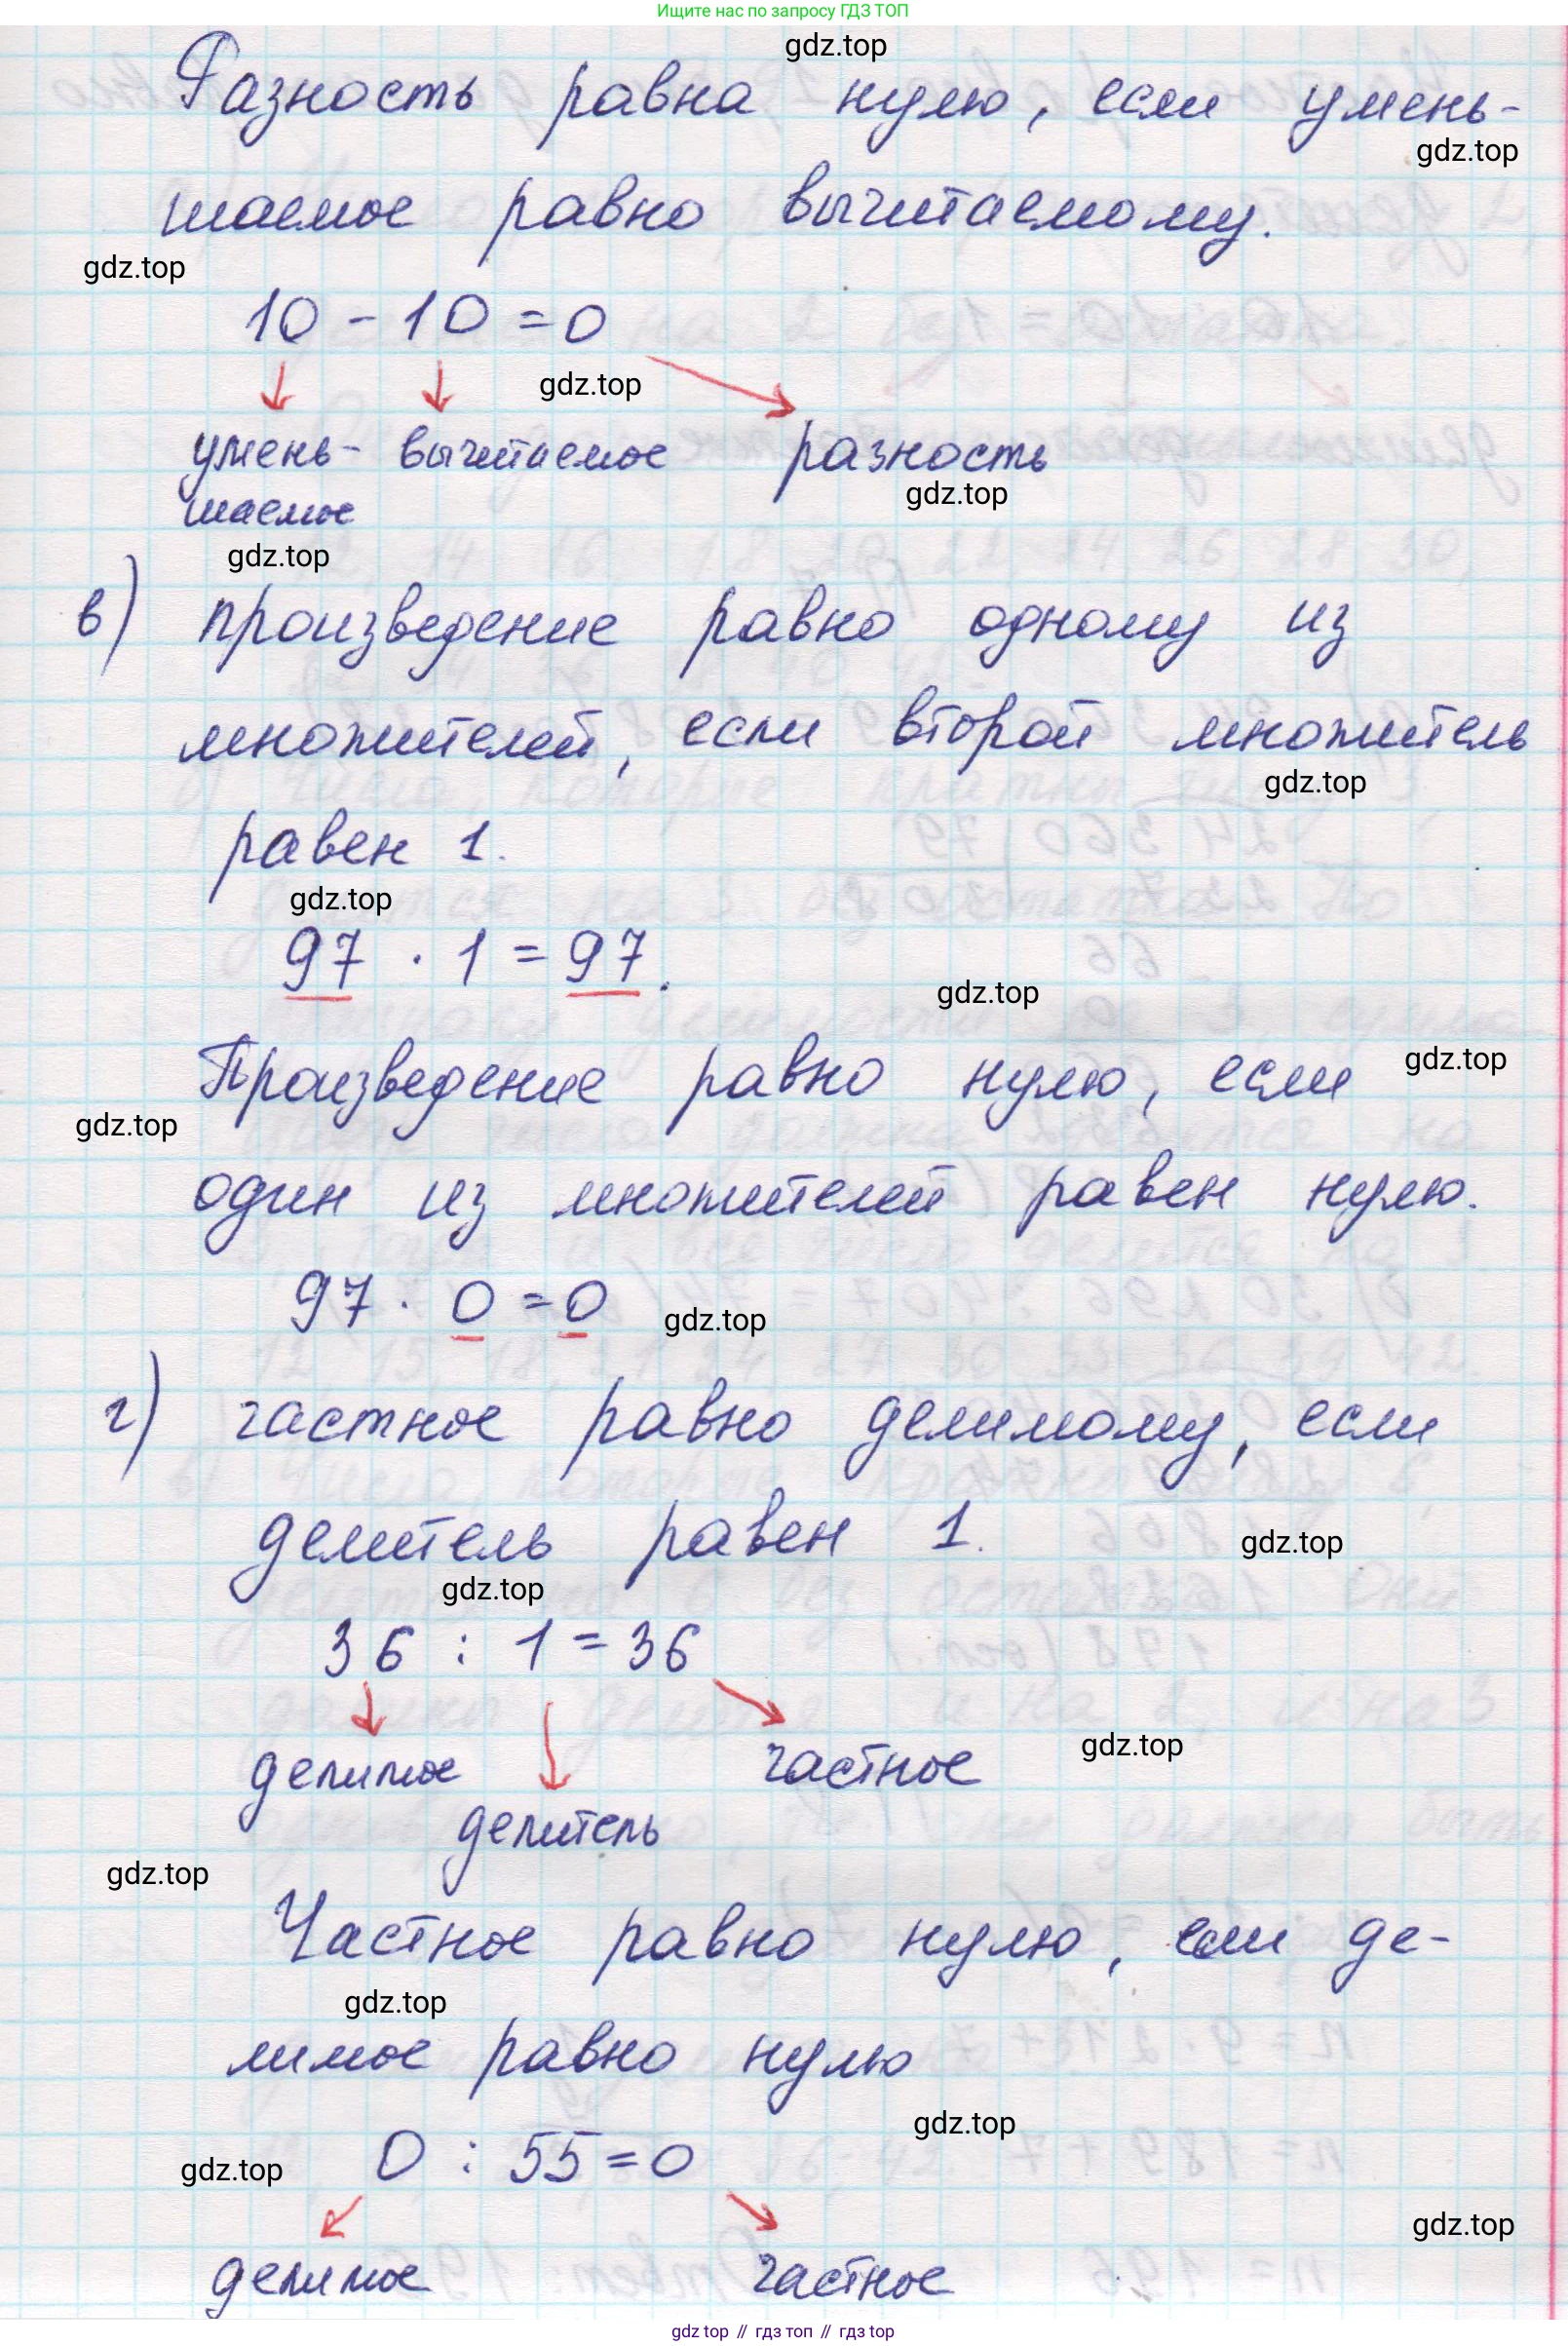 Ищите нас по запросу ГДЗ ТОП
gdz.top
Разность равна нулю, если умень-
gdz.top
шаемое равно вычитаемому.
gdz.top
10 - 10 = 0
gdz.top
умень- вычитаемое разность
шаемое
gdz.top
gdz.top
в) произведение равно одному из
множителей, если второй множитель
gdz.top
равен 1.
gdz.top
97 · 1 = 97.
gdz.top
Произведение равно нулю, если
gdz.top
gdz.top
один из множителей равен нулю.
97 · 0 = 0
gdz.top
г) частное равно делимому, если
делитель равен 1.
gdz.top
gdz.top
36 : 1 = 36
gdz.top
делимое частное
делитель
gdz.top
Частное равно нулю, если де-
gdz.top
лимое равно нулю
gdz.top
0 : 55 = 0
gdz.top
gdz.top
делимое частное
gdz top // гдз топ // гдз top